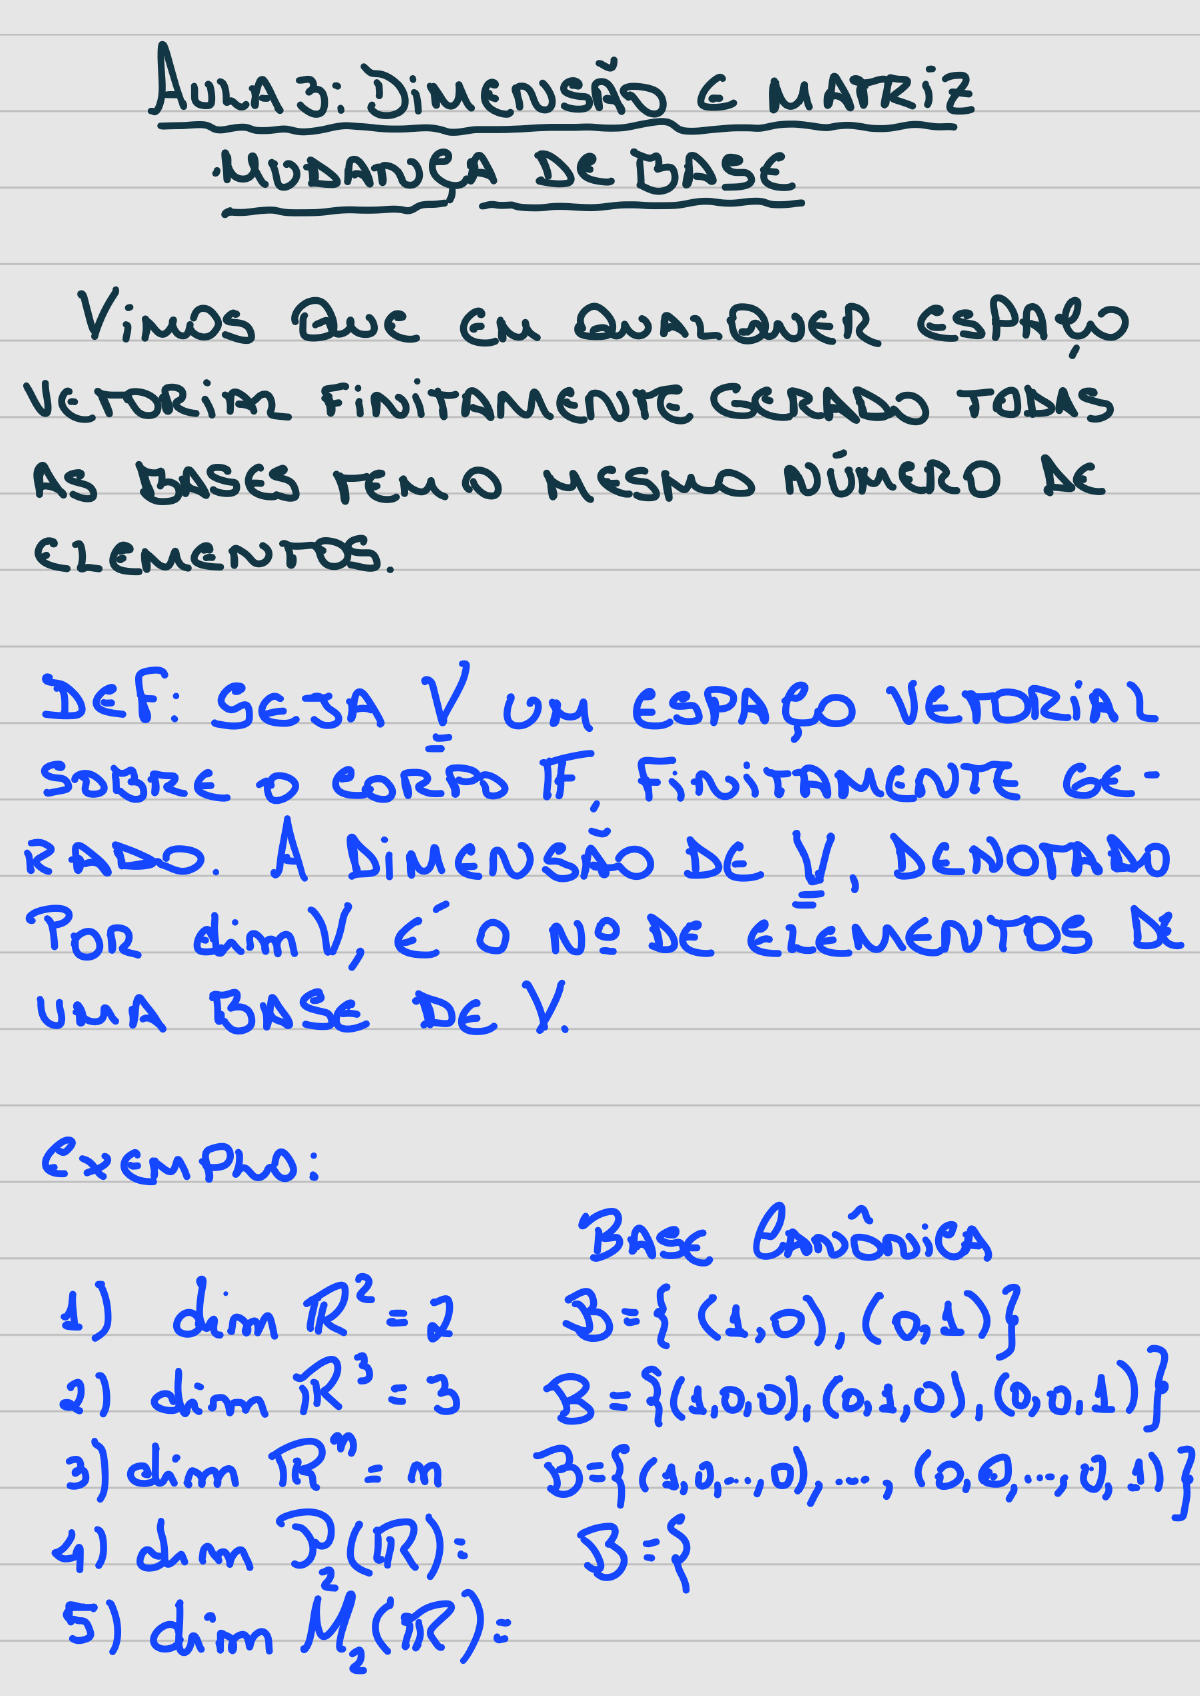 AULA 3: DIMENSÃO E MATRIZ
MUDANÇA DE BASE
VIMOS QUE EM QUALQUER ESPAÇO
VETORIAL FINITAMENTE GERADO TODAS
AS BASES TEM O MESMO NÚMERO DE
ELEMENTOS.
DEF: SEJA V UM ESPAÇO VETORIAL
SOBRE O CORPO 𝔽, FINITAMENTE GE-
RADO. A DIMENSÃO DE V, DENOTADO
POR dim V, É O Nº DE ELEMENTOS DE
UMA BASE DE V.
EXEMPLO:
BASE CANÔNICA
1) dim ℝ² = 2 B = {(1,0), (0,1)}
2) dim ℝ³ = 3 B = {(1,0,0), (0,1,0), (0,0,1)}
3) dim ℝⁿ = n B = {(1,0,...,0), ..., (0,0,...,0,1)}
4) dim P₂(ℝ) = B = {
5) dim M₂(ℝ) =